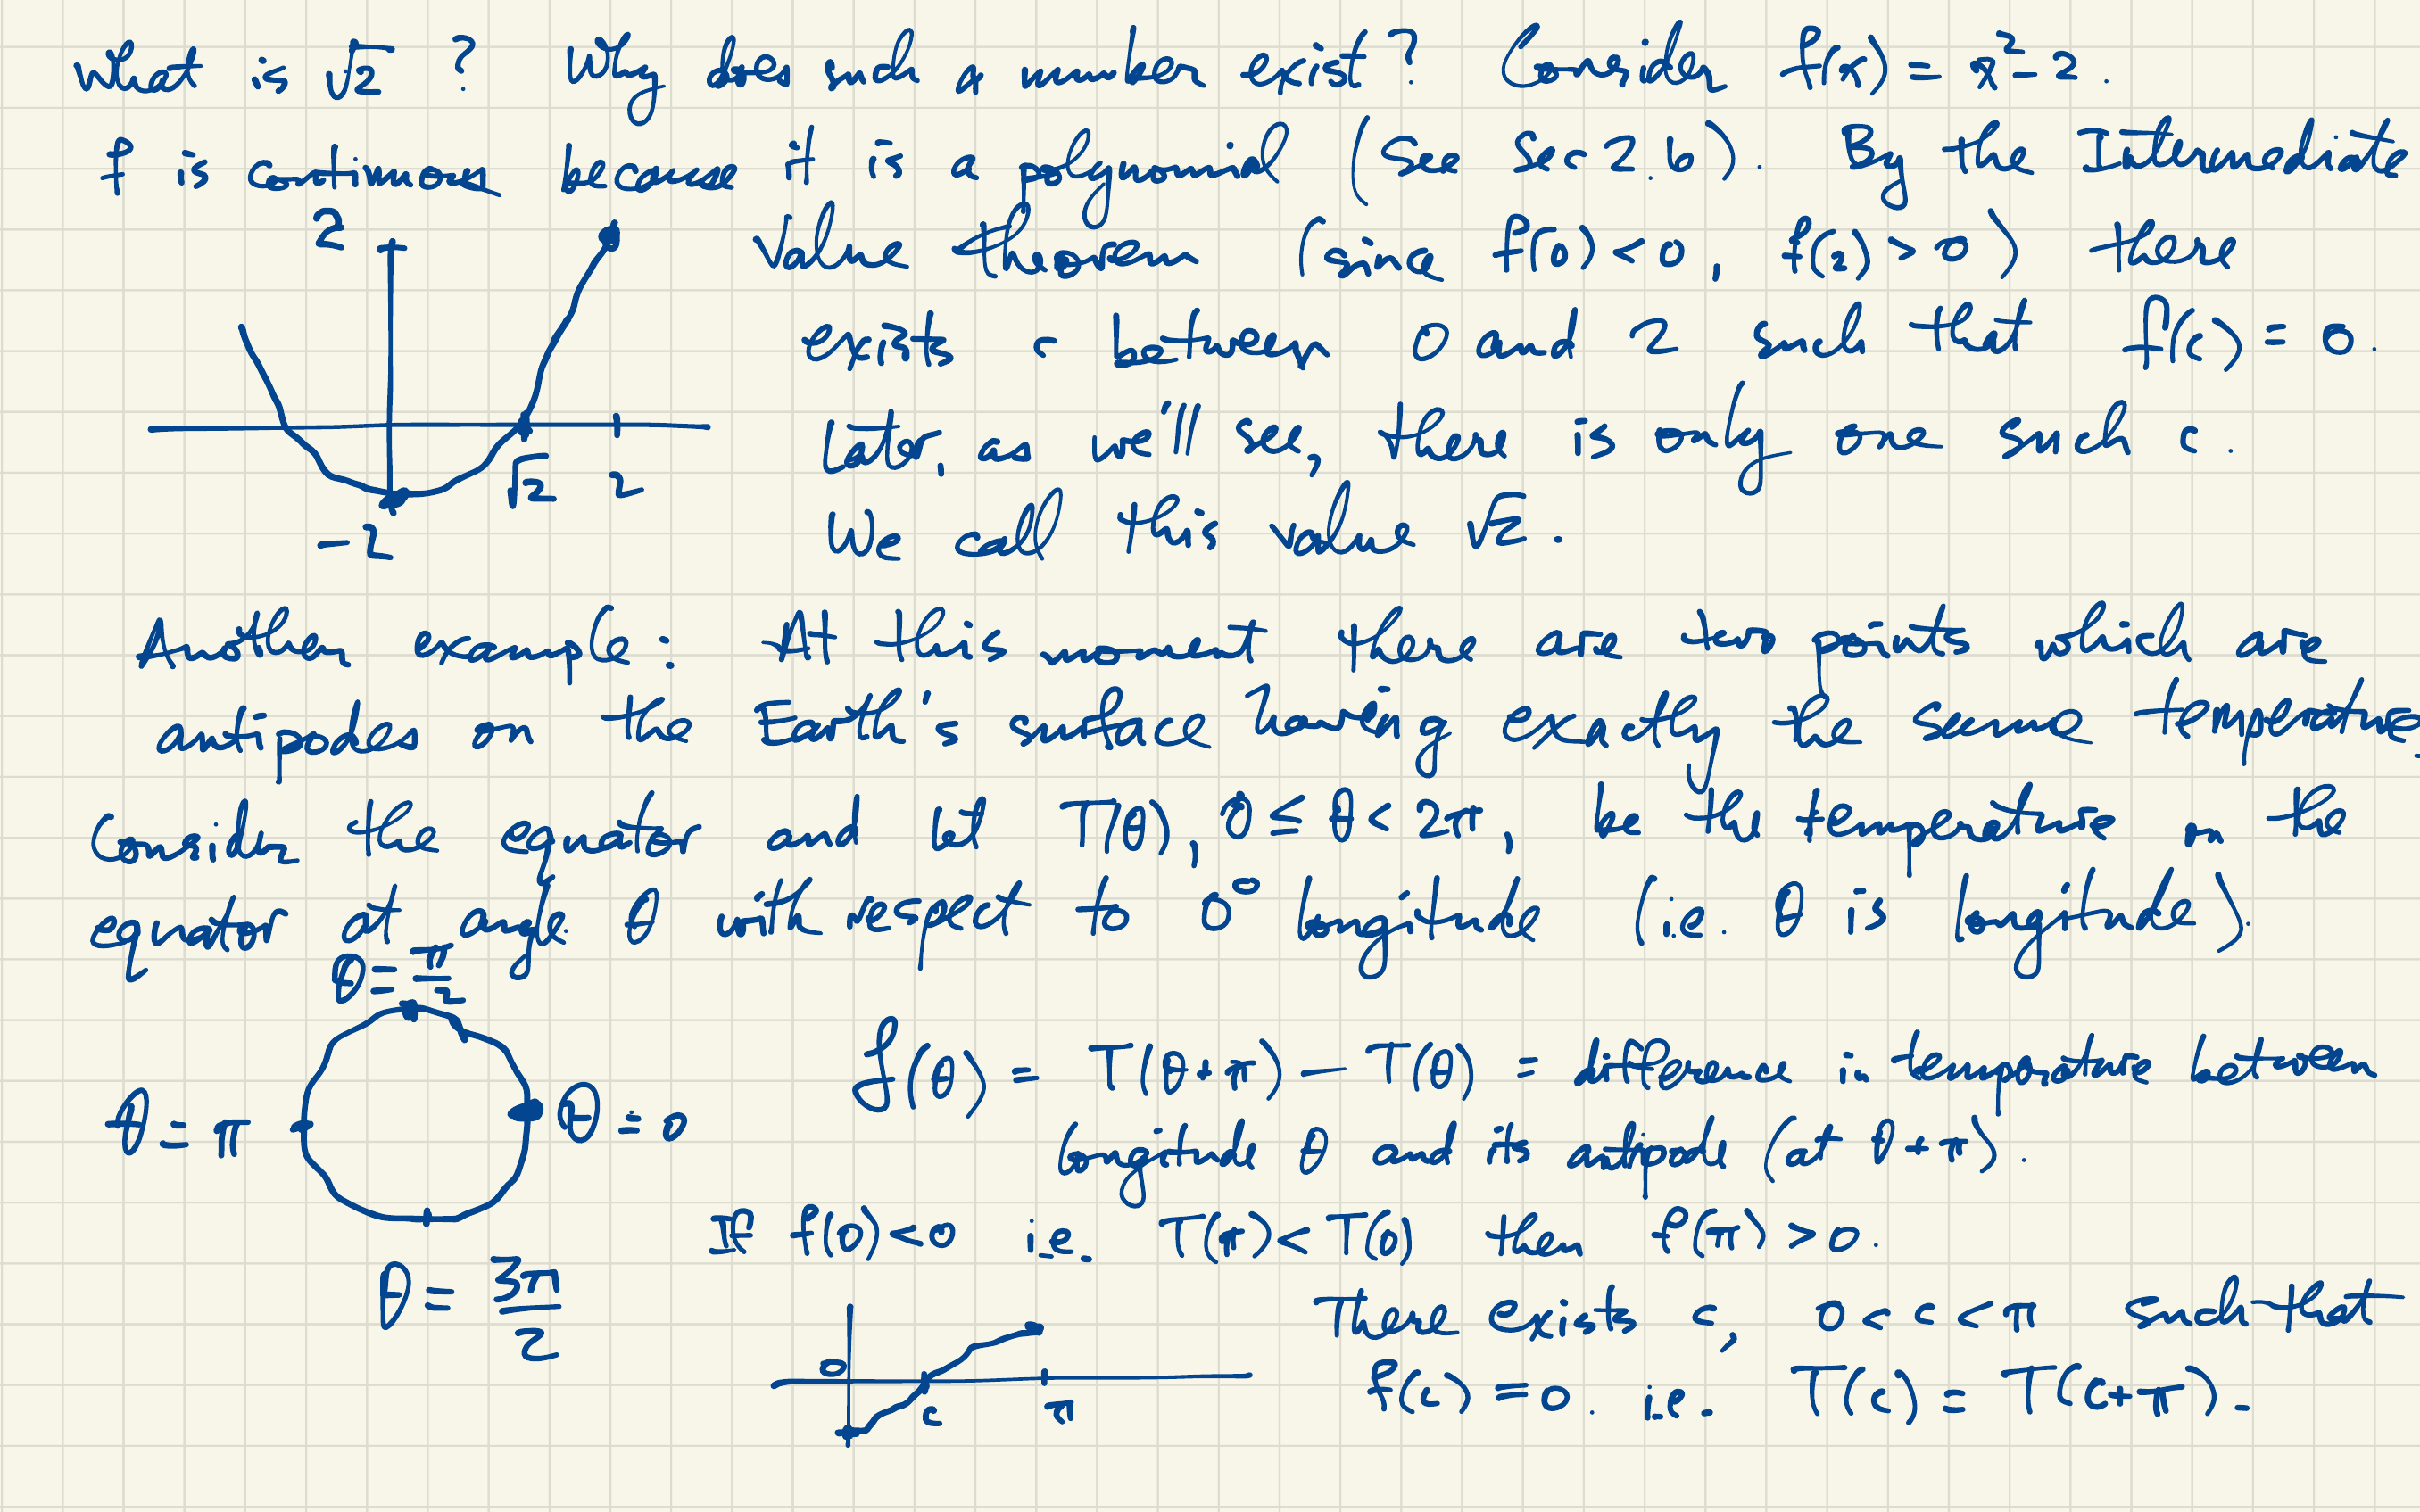 What is √2 ? Why does such a number exist? Consider f(x) = x² - 2.
f is continuous because it is a polynomial (See Sec 2.6). By the Intermediate
Value theorem (since f(0) < 0, f(2) > 0) there
exists c between 0 and 2 such that f(c) = 0.
Later, as we'll see, there is only one such c.
We call this value √2.
2
√2 2
-2
Another example: At this moment there are two points which are
antipodes on the Earth's surface having exactly the same temperature.
Consider the equator and let T(θ), 0 ≤ θ < 2π, be the temperature on the
equator at angle θ with respect to 0° longitude (i.e. θ is longitude).
θ = π/2
θ = π
θ = 0
θ = 3π/2
f(θ) = T(θ+π) - T(θ) = difference in temperature between
longitude θ and its antipode (at θ+π).
If f(0) < 0 i.e. T(π) < T(0) then f(π) > 0.
There exists c, 0 < c < π such that
f(c) = 0. i.e. T(c) = T(c+π).
0
c π